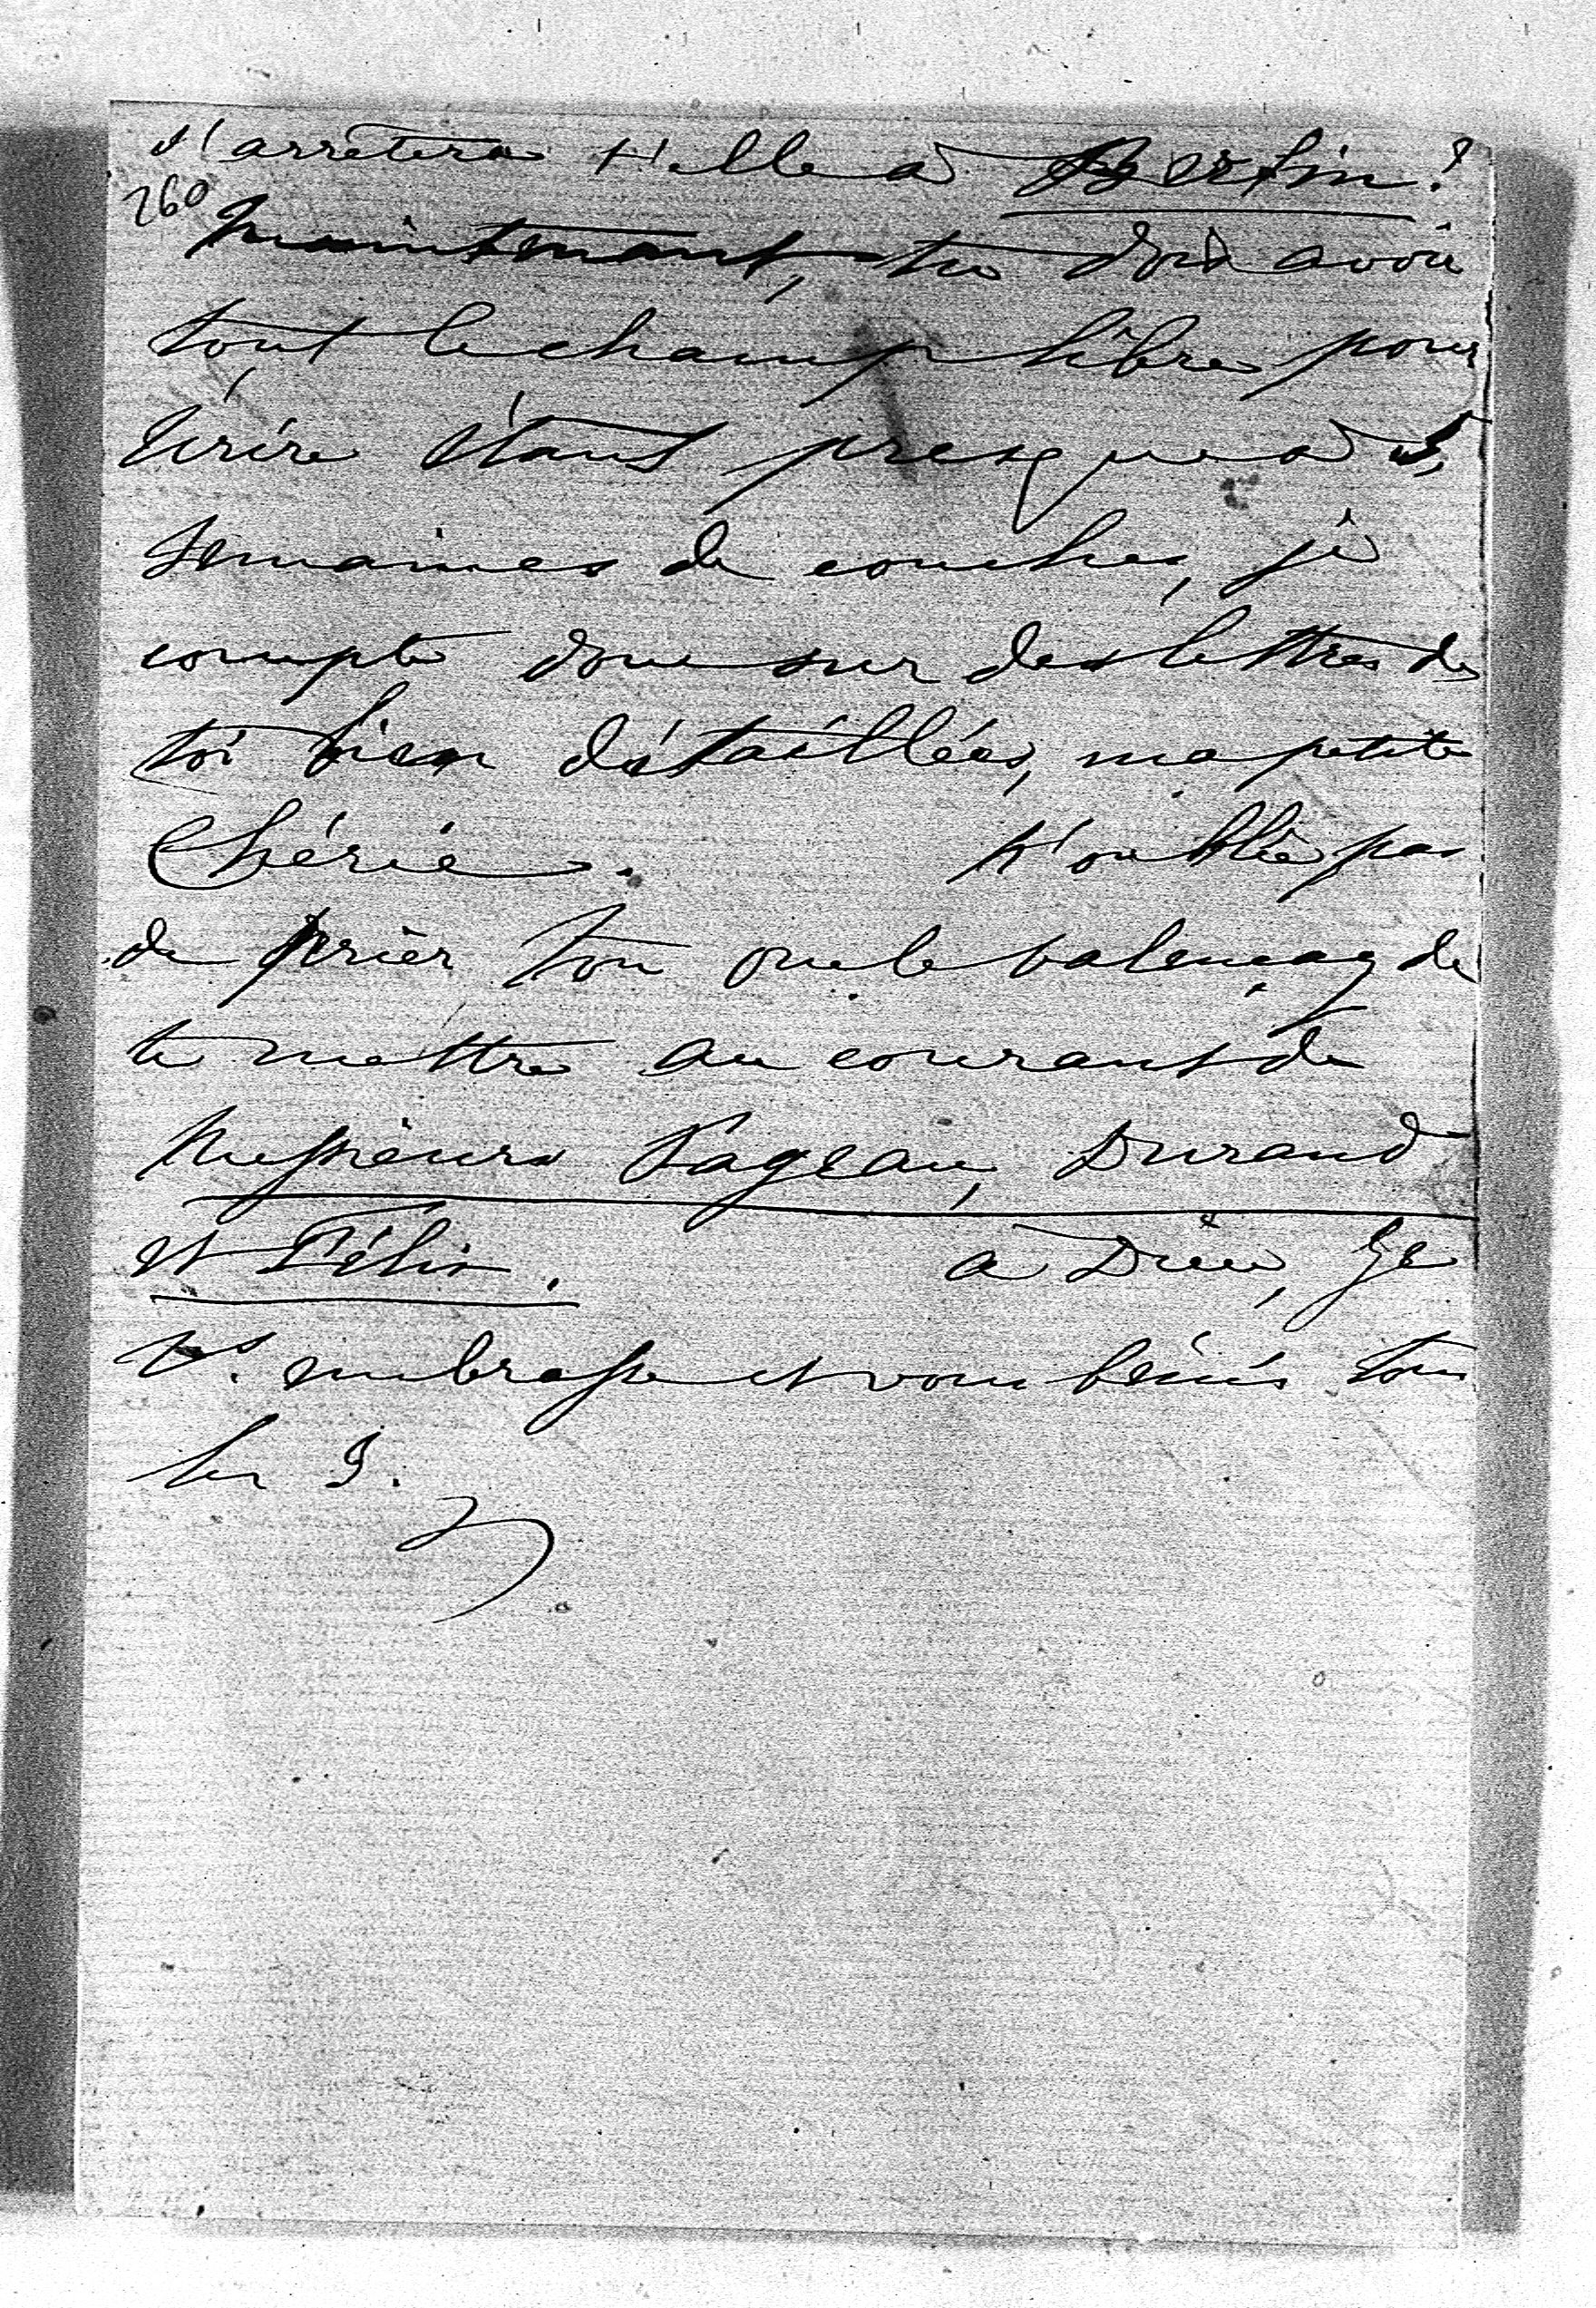 s'arrêtera t'elle à Berlin?
260
Maintenant, tu dois avoir
tout le champ libre pour
écrire étant presque à 5
semaines de couches, je
compte donc sur des lettres de
toi bien détaillées, ma petite
Chérie. N'oublie pas
de prier ton oncle Valençay de
te mettre au courant de
Messieurs Pageau, Durand
et Félix. à Dieu, Je
vs. embrasse et vous bénis tous
les 3.